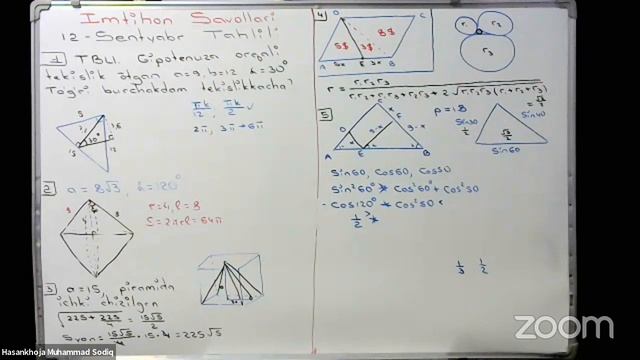 Imtihon Savollari
12-Sentyabr Tahlili
1 TBL1. Gipotenuza orqali
tekislik o'tgan a=9, b=12 α=30°
To'g'ri burchakdan tekislikkacha?
πk/12, πk/2 ✓
2π, 3π
30°
12
2 a=8√3, α=120°
r=4, l=8
3 a=15, piramida
ichki chizilgan
√225+225/4 = 15√5/2
Syon= 15√5/4 · 15·4 = 225√5
4
D C
5S 3S 8S
5x E 3x B
r₁ r₂
r₃
r = r₁r₂r₃ / r₁r₂+r₁r₃+r₂r₃+2√r₁r₂r₃(r₁+r₂+r₃)
5
C
D F
9-x
A E B
P=18
Sin60
Sin60, Cos60, Cos50
Sin²60° * Cos²60° + Cos²50
-Cos120° * Cos²50°
1/2 > *
1/3 1/2
zoom
Hasankhoja Muhammad Sodiq